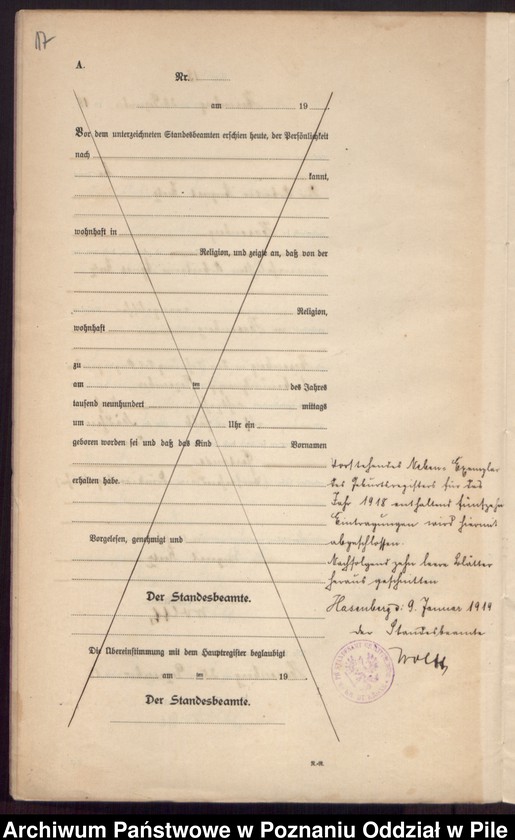 17
A.
Nr.
am 19
Vor dem unterzeichneten Standesbeamten erschien heute, der Persönlichkeit
nach
kannt,
wohnhaft in
Religion, und zeigte an, daß von der
Religion,
wohnhaft
zu
am ten des Jahres
tausend neunhundert mittags
um Uhr ein
geboren worden sei und daß das Kind Vornamen
erhalten habe.
Vorstehendes Neben-Exemplar
des Geburtsregisters für das
Jahr 1918 enthaltend fünfzehn
Eintragungen wird hiermit
abgeschlossen.
Nachfolgend zehn leere Blätter
heraus geschnitten
Hasenberg d. 9. Januar 1919
der Standesbeamte
Wolff
Vorgelesen, genehmigt und
Der Standesbeamte.
Die Übereinstimmung mit dem Hauptregister beglaubigt
am ten 19
Der Standesbeamte.
R.-R.
Archiwum Państwowe w Poznaniu Oddział w Pile